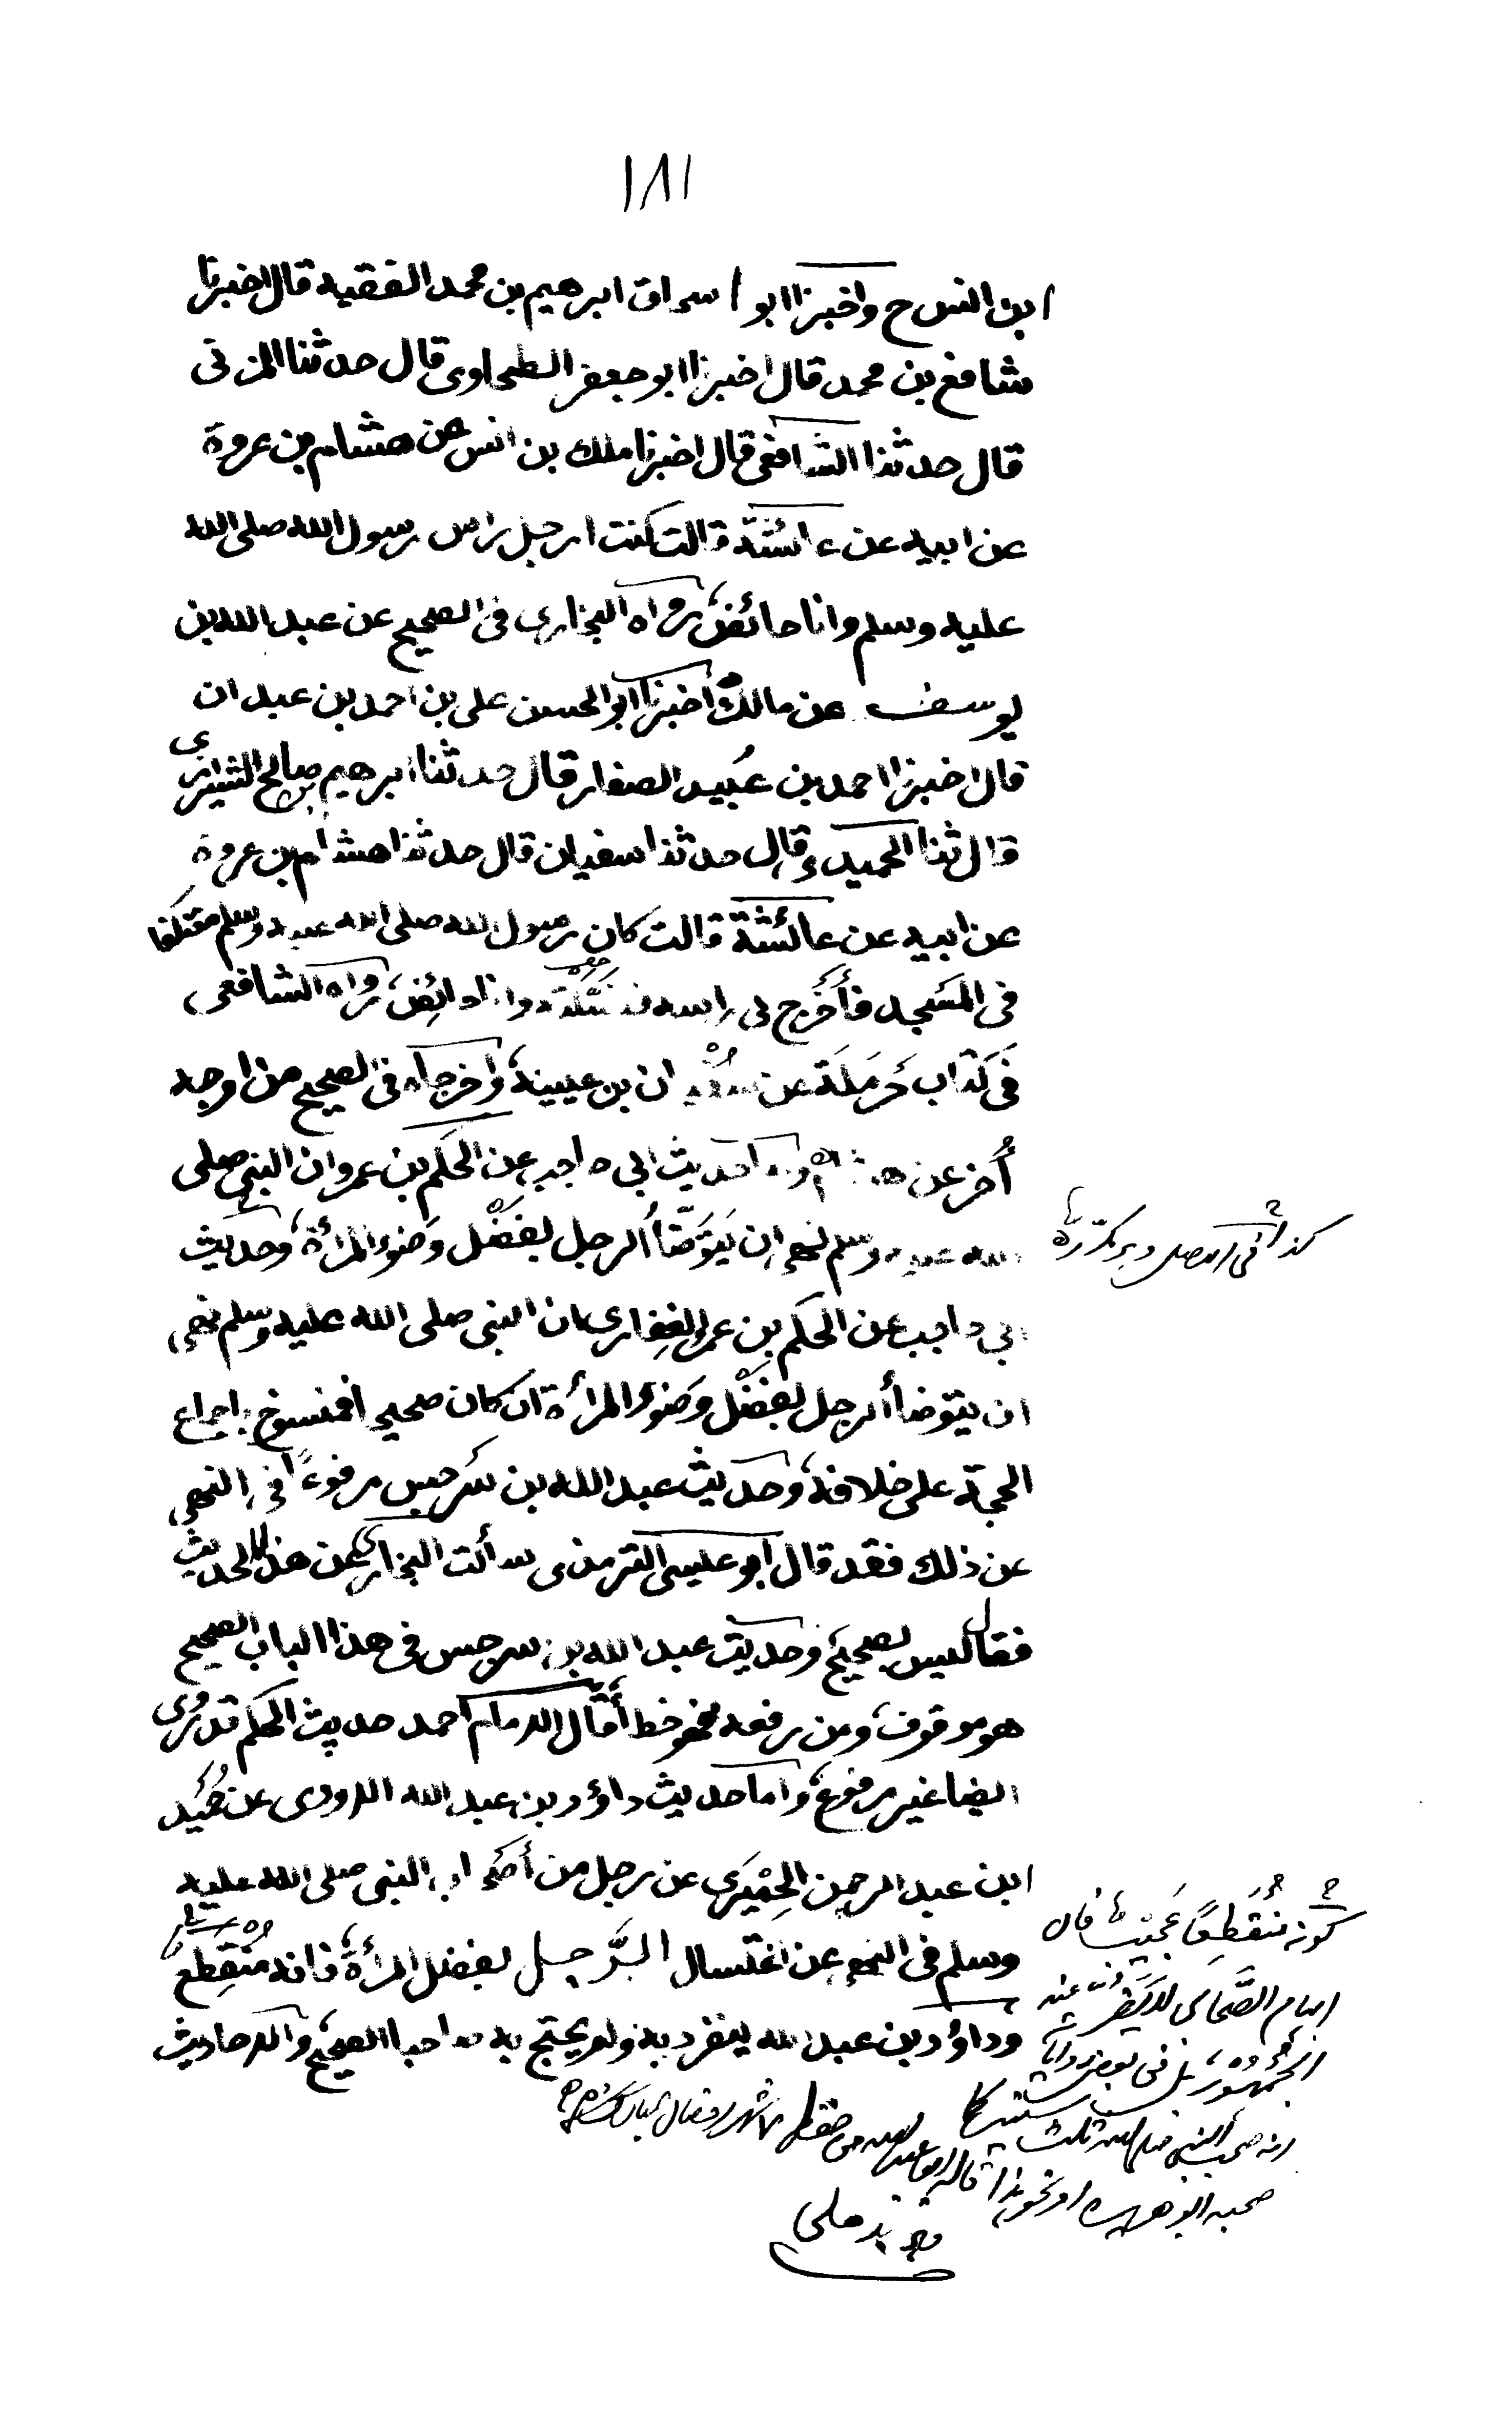 ١٨١
ابن انس ح واخبرنا ابو اسحاق ابرهيم بن محمد الفقيه قال اخبرنا
شافع بن محمد قال اخبرنا ابو جعفر الطحاوى قال حدثنا المزنى
قال حدثنا الشافعى قال اخبرنا ملك بن انس عن هشام بن عروة
عن ابيه عن عائشة قالت كنت ارجل راس رسول الله صلى الله
عليه وسلم وانا حائض، رواه البخارى فى الصحيح عن عبد الله بن
يوسف عن مالك اخبرنا ابو الحسن على بن احمد بن عبدان
قال اخبرنا احمد بن عُبيد الصفار قال حدثنا ابرهيم بن صالح الشيرازى
قال ثنا الحميدى قال حدثنا سفيان قال حدثنا هشام بن عروة
عن ابيه عن عائشة قالت كان رسول الله صلى الله عليه وسلم معتكفا
فى المسجد فأَخرَج لى راسه وانا حائض، رواه الشافعى
فى كتاب حَرمَلَة عن سفيان بن عيينة، واخرجاه فى الصحيح من اوجه
أُخر عن هشام واما حديث ابى حاجب عن الحكم بن عمرو ان النبى صلى
الله عليه وسلم نهى ان يَتَوَضَّأ الرجل بفَضْل وَضوء المرأة، وحديث
ابى حاجب عن الحكم بن عمرو الغِفارى ان النبى صلى الله عليه وسلم نهى
ان يتوضأ الرجل بفَضْل وَضوء المرأة ان كان صحيحا فمنسوخ باجماع
الحجة على خلافه، وحديث عبد الله بن سَرجس مرفوعًا فى النهى
عن ذلك فقد قال ابو عيسى الترمذى سألت البخارى عن هذا الحديث
فقال ليس بصحيح وحديث عبد الله بن سرجس فى هذا الباب الصحيح
هو موقوف، ومن رفعه فهو خطأ، قال الامام احمد حديث الحكم قد روى
ايضا غير مرفوع، واما حديث داؤد بن عبد الله الاودى عن حُمَيد
ابن عبد الرحمن الحِمْيَرى عن رجل من أصحاب النبى صلى الله عليه
وسلم فى النهى عن اغتسال الرَّجل بفضل المرأة، فانه مُنْقِطع
وداؤد بن عبد الله ينفرد به ولم يحتج به صاحبا الصحيح، والاحاديث
كذا فى الاصل
كونه مُنقَطِعًا عجيب فان
ابهام الصَّحابى لا يَضر عند
الجُمْهُور، بل فى بعض
انه صحب النبى
صحبه ابو هريرة